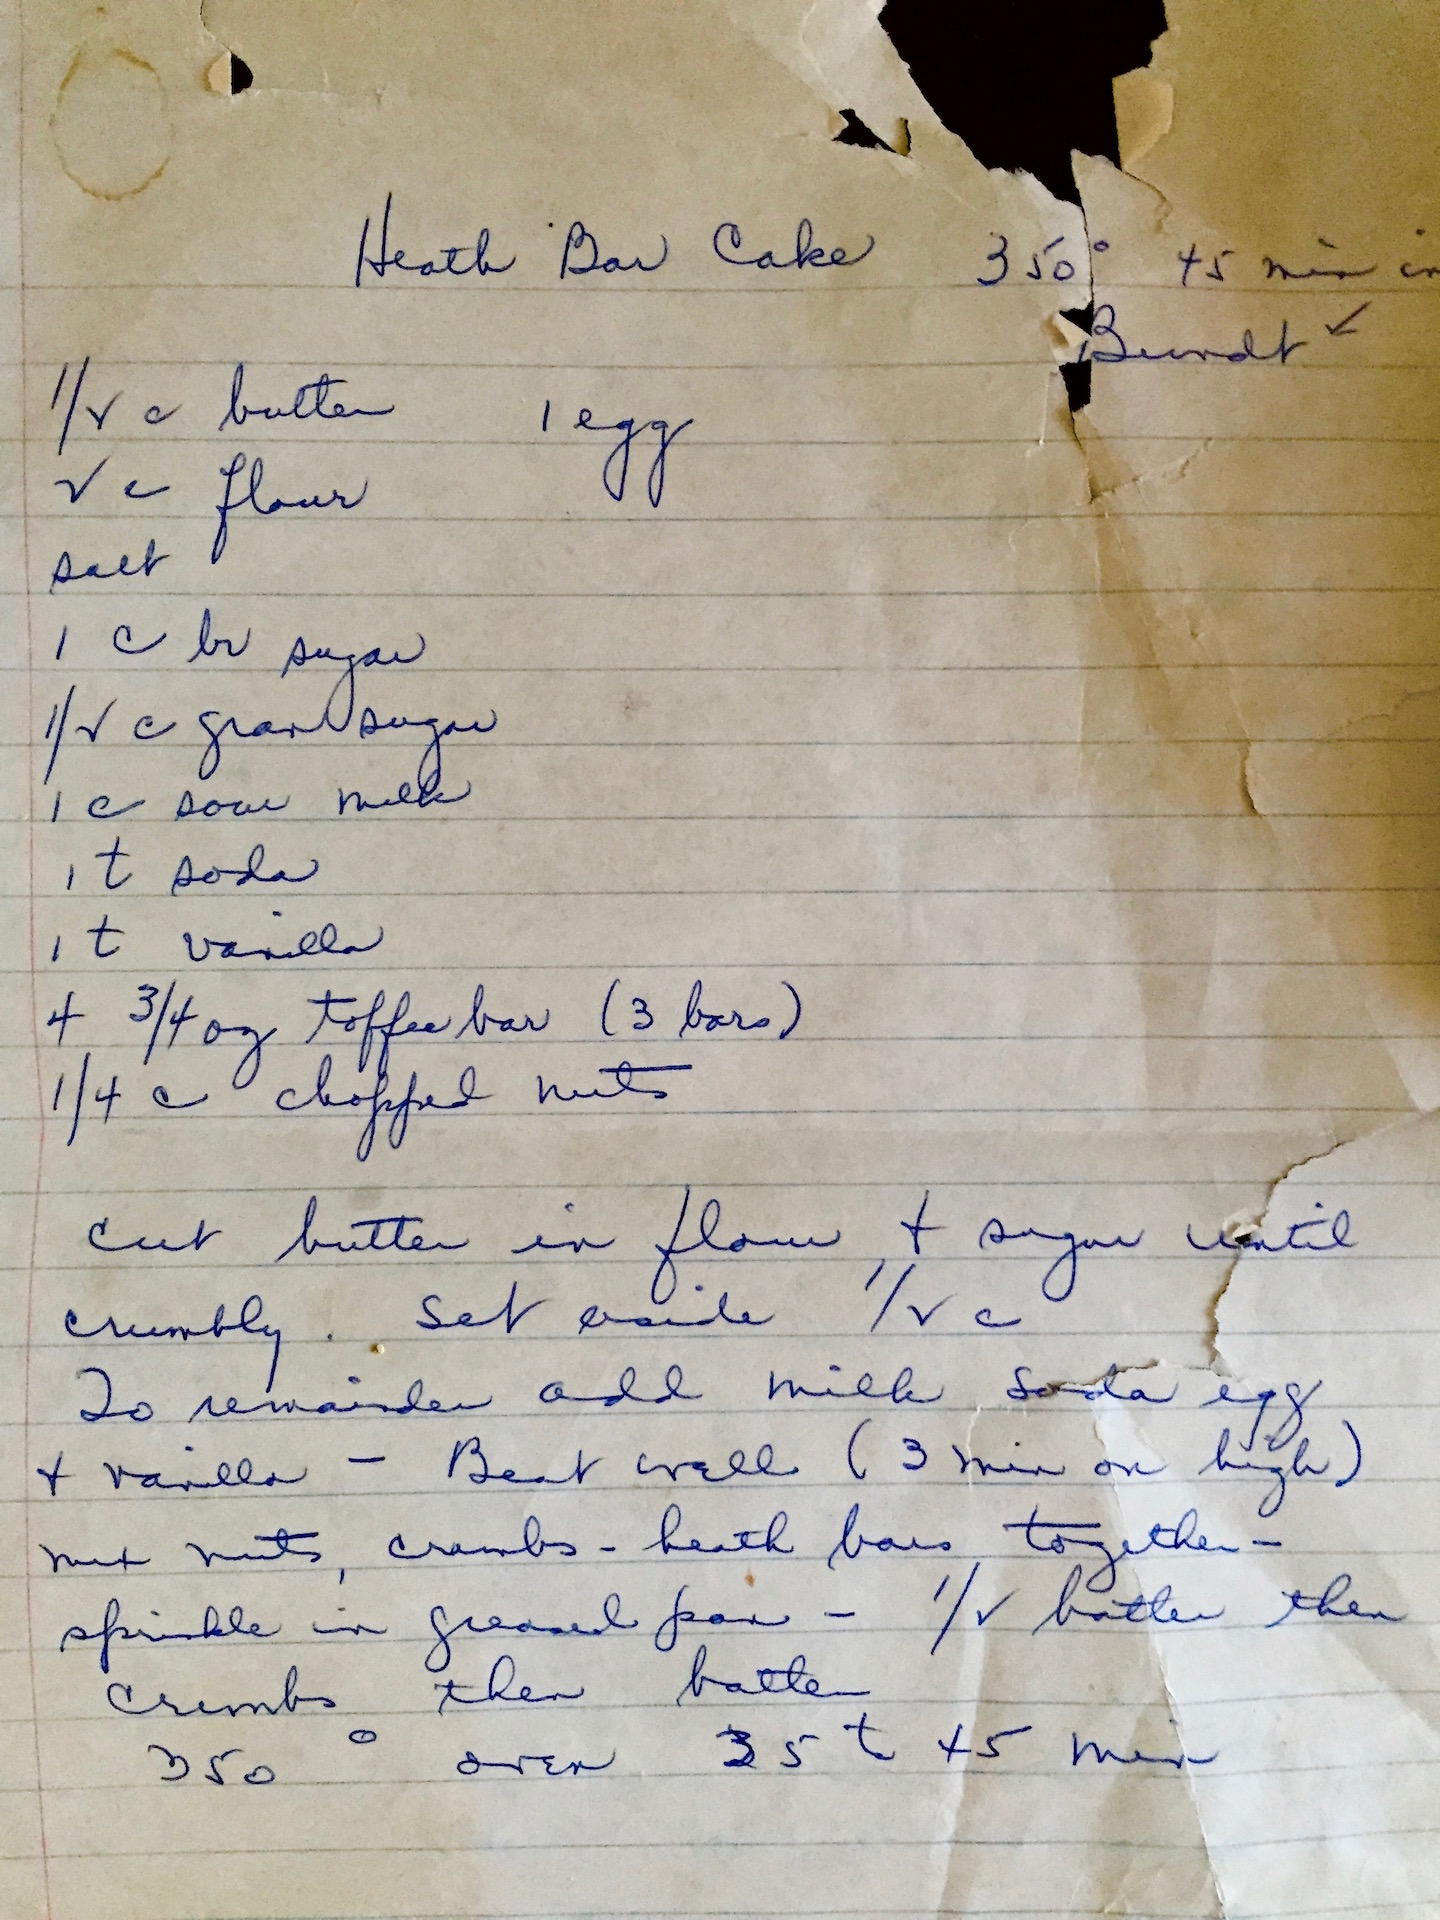 Heath Bar Cake 350° 45 min in
Bundt ✓
1/2 c butter 1 egg
2 c flour
salt
1 c br sugar
1/2 c gran sugar
1 c sour milk
1 t soda
1 t vanilla
4 3/4 oz toffee bar (3 bars)
1/4 c chopped nuts
cut butter in flour + sugar until
crumbly. Set aside 1/2 c
To remainder add milk soda egg
+ vanilla - Beat well (3 min on high)
mix nuts, crumbs - heath bars together -
sprinkle in greased pan - 1/2 batter then
crumbs then batter
350° oven 35 to 45 min